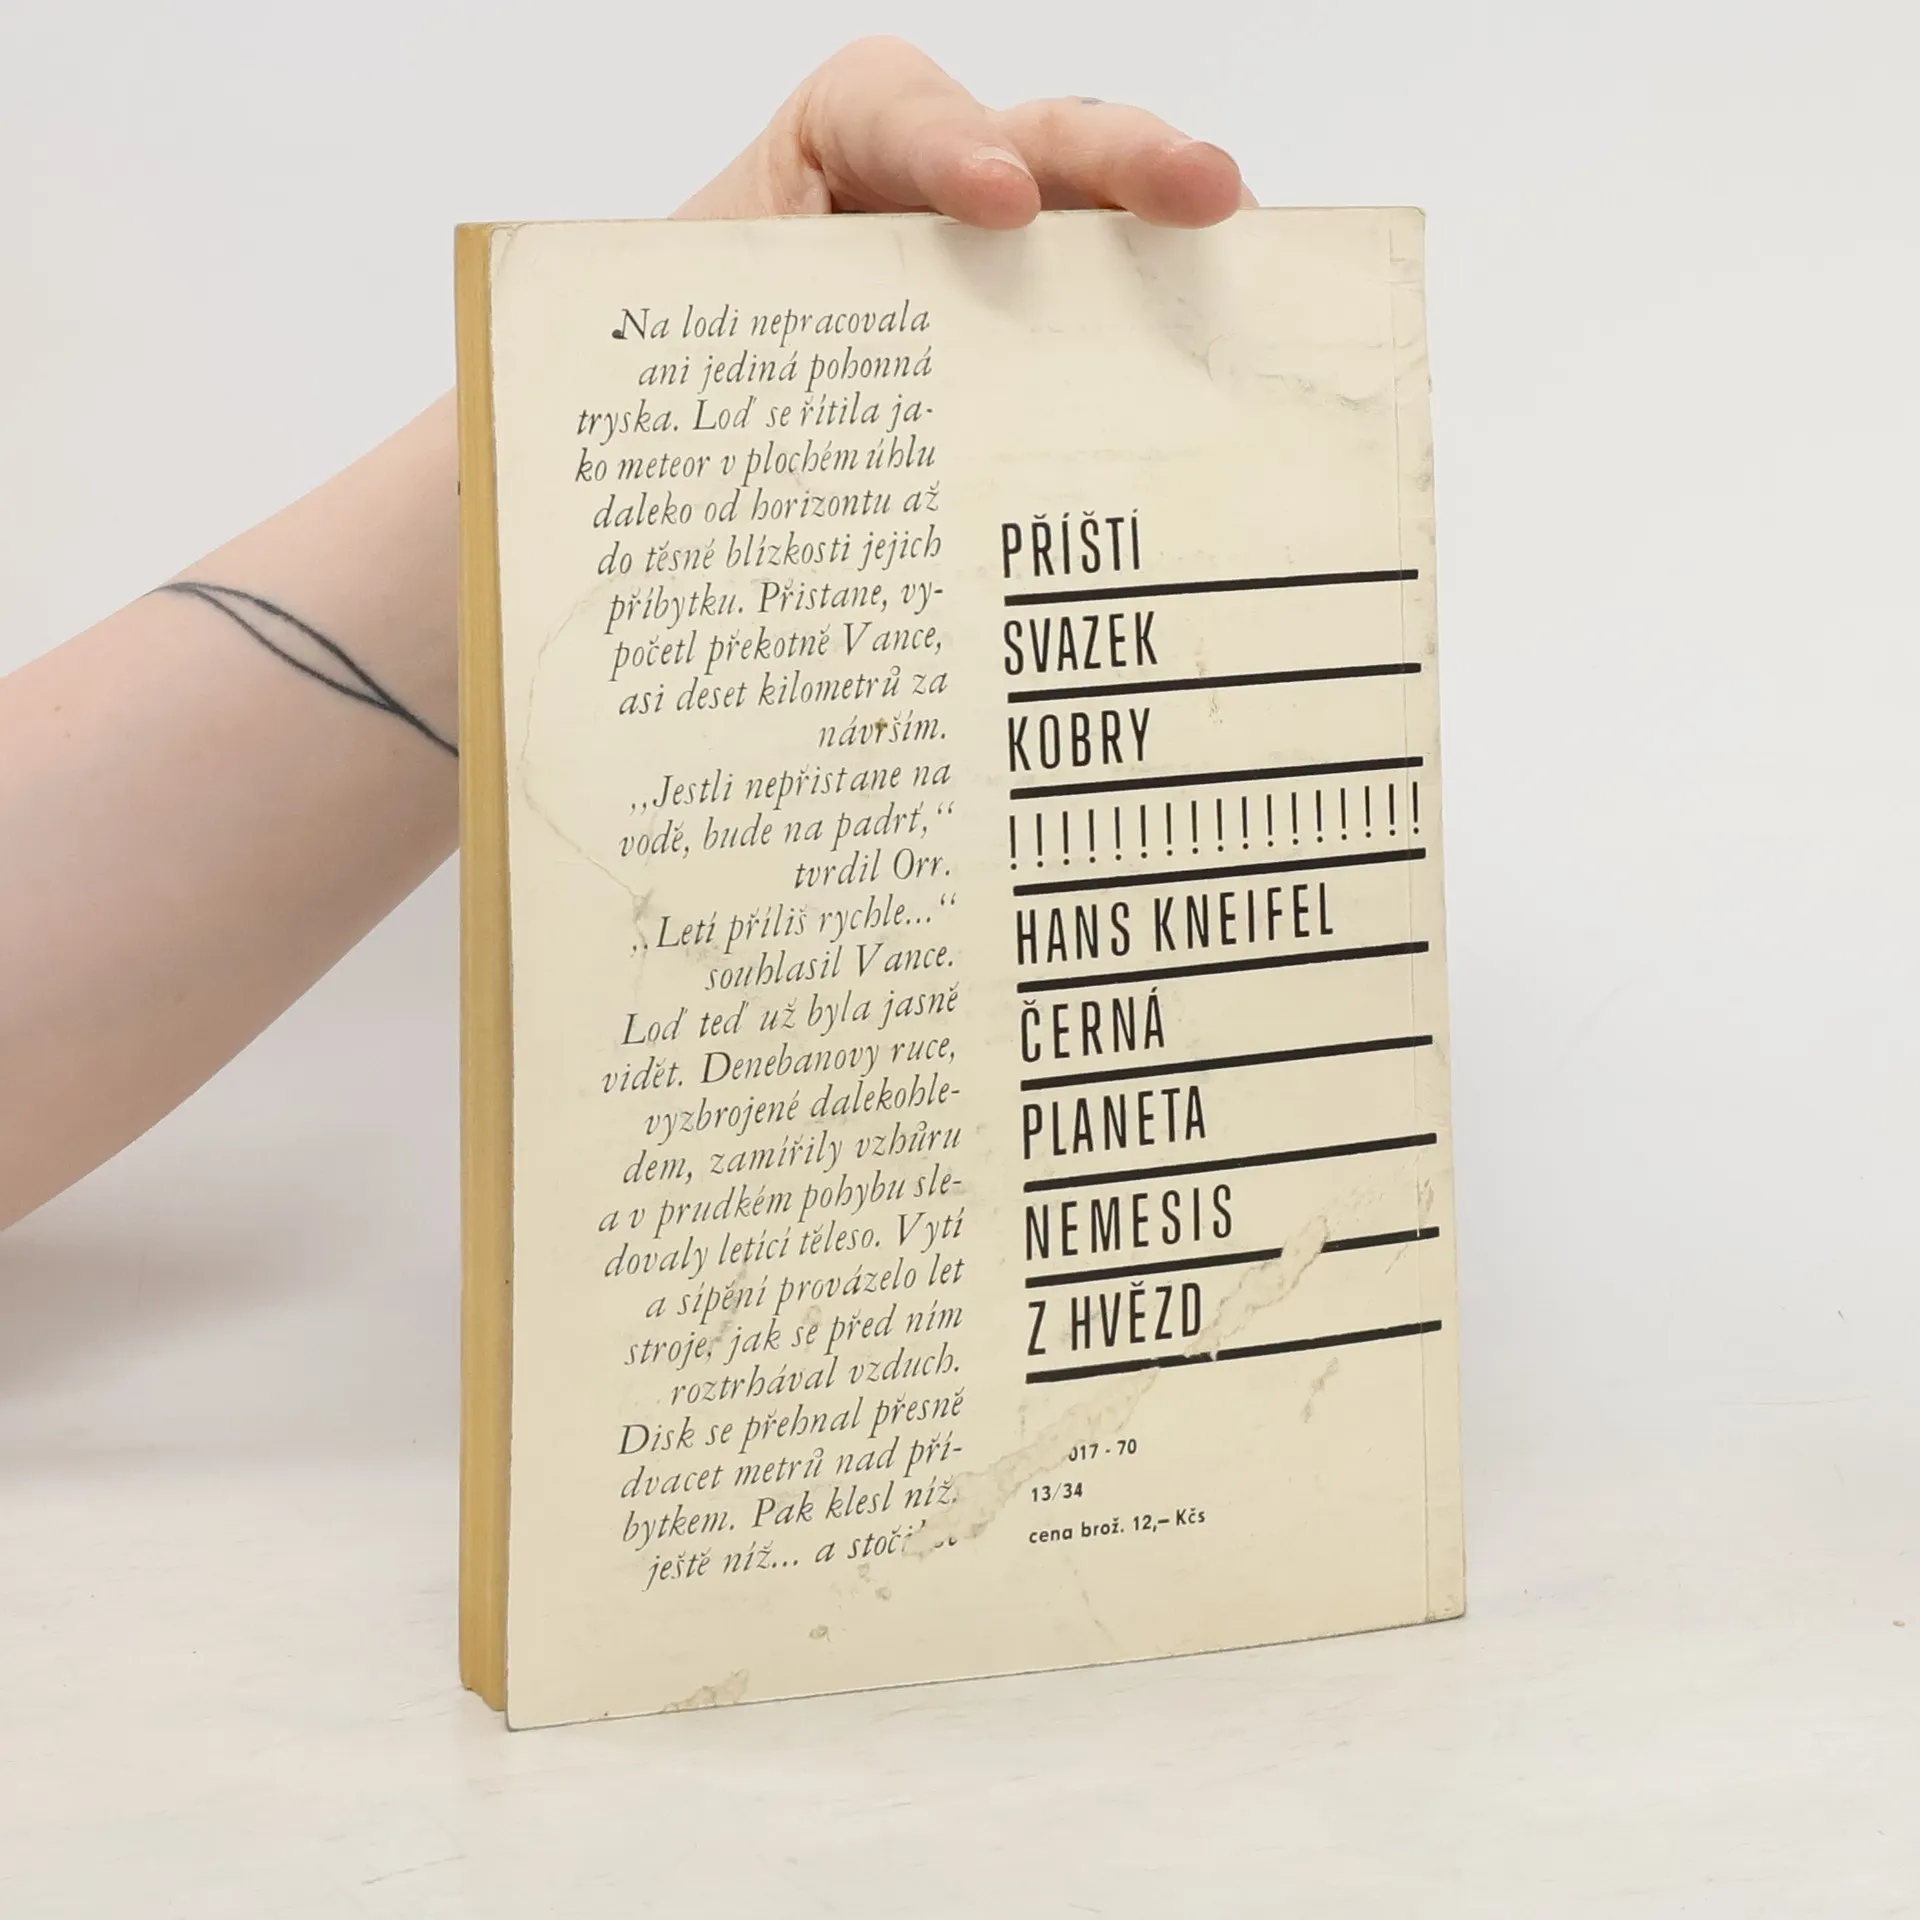 Na lodi nepracovala
ani jediná pohonná
tryska. Loď se řítila ja-
ko meteor v plochém úhlu
daleko od horizontu až
do těsné blízkosti jejich
příbytku. Přistane, vy-
početl překotně Vance,
asi deset kilometrů za
návrším.
„Jestli nepřistane na
vodě, bude na padrť,“
tvrdil Orr.
„Letí příliš rychle...“
souhlasil Vance.
Loď teď už byla jasně
vidět. Denebanovy ruce,
vyzbrojené dalekohle-
dem, zamířily vzhůru
a v prudkém pohybu sle-
dovaly letící těleso. Vytí
a sípění provázelo let
stroje, jak se před ním
roztrhával vzduch.
Disk se přehnal přesně
dvacet metrů nad pří-
bytkem. Pak klesl níž.
ještě níž... a
PŘÍŠTÍ
SVAZEK
KOBRY
!!!!!!!!!!!!!!!!!
HANS KNEIFEL
ČERNÁ
PLANETA
NEMESIS
Z HVĚZD
017 - 70
13/34
cena brož. 12,– Kčs